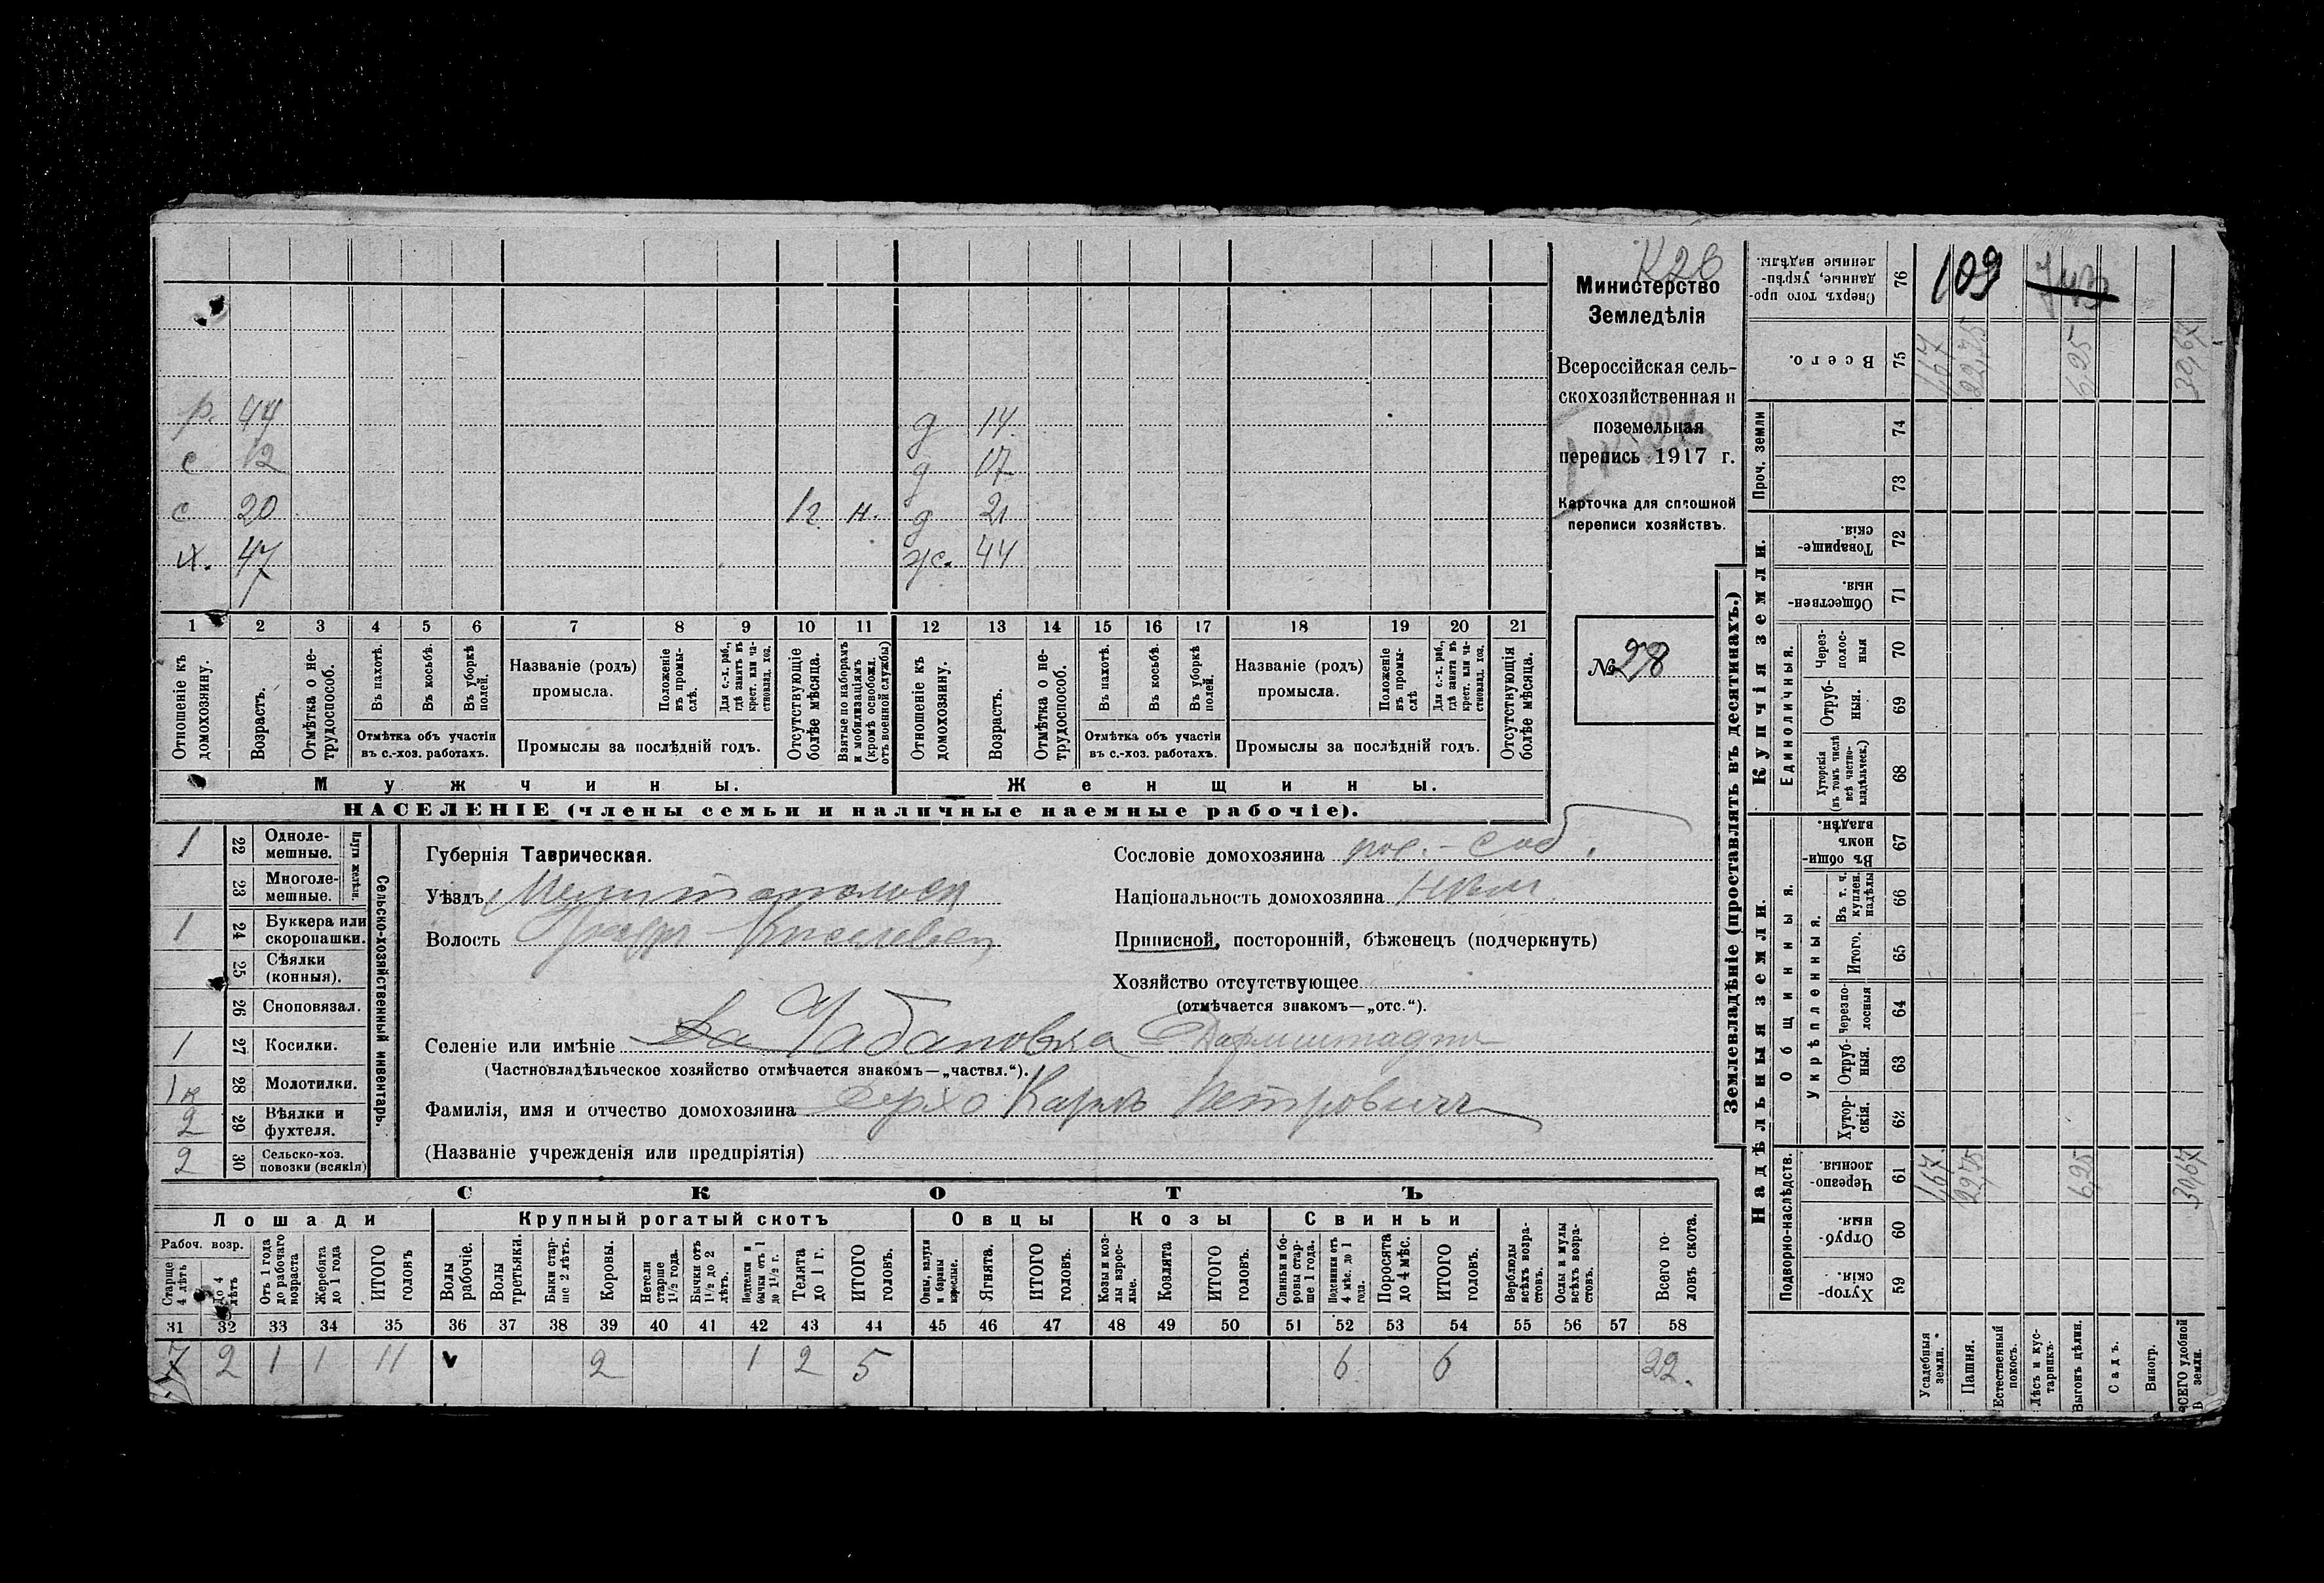 К26
Министерство
Земледѣлія
Всероссійская сель-
скохозяйственная и
поземельная
перепись 1917 г.
Карточка для сплошной
переписи хозяйствъ.
№ 28
р. 44 д 14.
с 12 д 17
с 20 1 г. н. д 21
х. 47 ж. 44
1 2 3 4 5 6 7 8 9 10 11 12 13 14 15 16 17 18 19 20 21
Отношеніе къ домохозяину.
Возрастъ.
Отмѣтка о не-трудоспособ.
Въ пахотѣ.
Въ косьбѣ.
Въ уборкѣ полей.
Отмѣтка объ участіи въ с.-хоз. работахъ.
Названіе (родъ) промысла.
Положеніе въ промыслѣ.
Для с.-х. раб., гдѣ занятъ въ крест. или ча-стновлад. хоз.
Промыслы за послѣдній годъ.
Отсутствующіе болѣе мѣсяца.
Взятые по наборамъ и мобилизаціямъ (кромѣ освобожд. отъ военной службы)
Отношеніе къ домохозяину.
Возрастъ.
Отмѣтка о не-трудоспособ.
Въ пахотѣ.
Въ косьбѣ.
Въ уборкѣ полей.
Отмѣтка объ участіи въ с.-хоз. работахъ.
Названіе (родъ) промысла.
Положеніе въ промы-слѣ
Для с.-х. раб., гдѣ занятъ въ крест. или ча-стновлад. хоз.
Промыслы за послѣдній годъ.
Отсутствующія болѣе мѣсяца.
Мужчины. Женщины.
НАСЕЛЕНІЕ (члены семьи и наличные наемные рабочіе).
1 22 Одноле-мешные.
23 Многоле-мешные.
Плуги желѣзн.
1 24 Буккера или скоропашки.
25 Сѣялки (конныя).
26 Сноповязал.
1 27 Косилки.
1 к 28 Молотилки.
2 29 Вѣялки и фухтеля.
2 30 Сельско-хоз. повозки (всякія)
Сельско-хозяйственный инвентарь.
Губернія Таврическая.
Уѣздъ Мелитопольск
Волость
Селеніе или имѣніе Чабановка Дармштадтъ
(Частновладѣльческое хозяйство отмѣчается знакомъ—„частвл.“).
Фамилія, имя и отчество домохозяина Карлъ Петровичъ
(Названіе учрежденія или предпріятія)
Сословіе домохозяина пос.-соб.
Національность домохозяина нѣм.
Приписной, посторонній, бѣженецъ (подчеркнуть)
Хозяйство отсутствующее
(отмѣчается знакомъ—„отс.“).
СКОТЪ
Лошади
Крупный рогатый скотъ
Овцы
Козы
Свиньи
Рабоч. возр.
Старше 4 лѣтъ
До 4 лѣтъ
Отъ 1 года до рабочаго возраста
Жеребята до 1 года
ИТОГО головъ
Волы рабочіе.
Волы третьяки.
Быки стар-ше 2 лѣтъ.
Коровы.
Нетели старше 1½ года.
Бычки отъ 1½ до 2 лѣтъ.
Подтелки и бычки отъ 1 до 1½ г.
Телята до 1 г.
ИТОГО головъ.
Овцы, валухи и бараны взрослые.
Ягнята.
ИТОГО головъ.
Козы и коз-лы взрос-лые.
Козлята
ИТОГО головъ.
Свиньи и бо-ровы стар-ше 1 года.
Подсвинки отъ 4 мѣс. до 1 года.
Поросята до 4 мѣс.
ИТОГО головъ.
Верблюды всѣхъ возра-стовъ.
Ослы и мулы всѣхъ возра-стовъ.
Всего го-ловъ скота.
31 32 33 34 35 36 37 38 39 40 41 42 43 44 45 46 47 48 49 50 51 52 53 54 55 56 57 58
7 2 1 1 11 v 2 1 2 5 6 6 22.
Землевладѣніе (проставлять въ десятинахъ.)
Купчія земли.
Надѣльныя земли.
Проч. земли
Единоличныя.
Общинныя.
Укрѣпленныя.
Подворно-наслѣдств.
Сверхъ того про-данные, укрѣп-ленные надѣлы. 76 109 743
Всего. 75 1,67 22,75 6,25 30,67
74
73
Товарище-скія. 72
Обществен-ныя. 71
Через-полос-ныя 70
Отруб-ныя. 69
Хуторскія (въ томъ числѣ всѣ частно-владѣльческ.) 68
Въ общи-номъ владѣн. 67
Въ т. ч. куплен. надѣлы 66
Итого. 65
Черезпо-лосныя 64
Отруб-ныя. 63
Хутор-скія. 62
Черезпо-лосныя. 61 1,67 22,75 6,25 30,67
Отруб-ныя. 60
Хутор-скія. 59
Усадебныя земли.
Пашня.
Естественный покосъ.
Лѣсъ и кус-тарникъ
Выгонъ цѣлин.
Садъ.
Виногр.
ВСЕГО удобной земли.